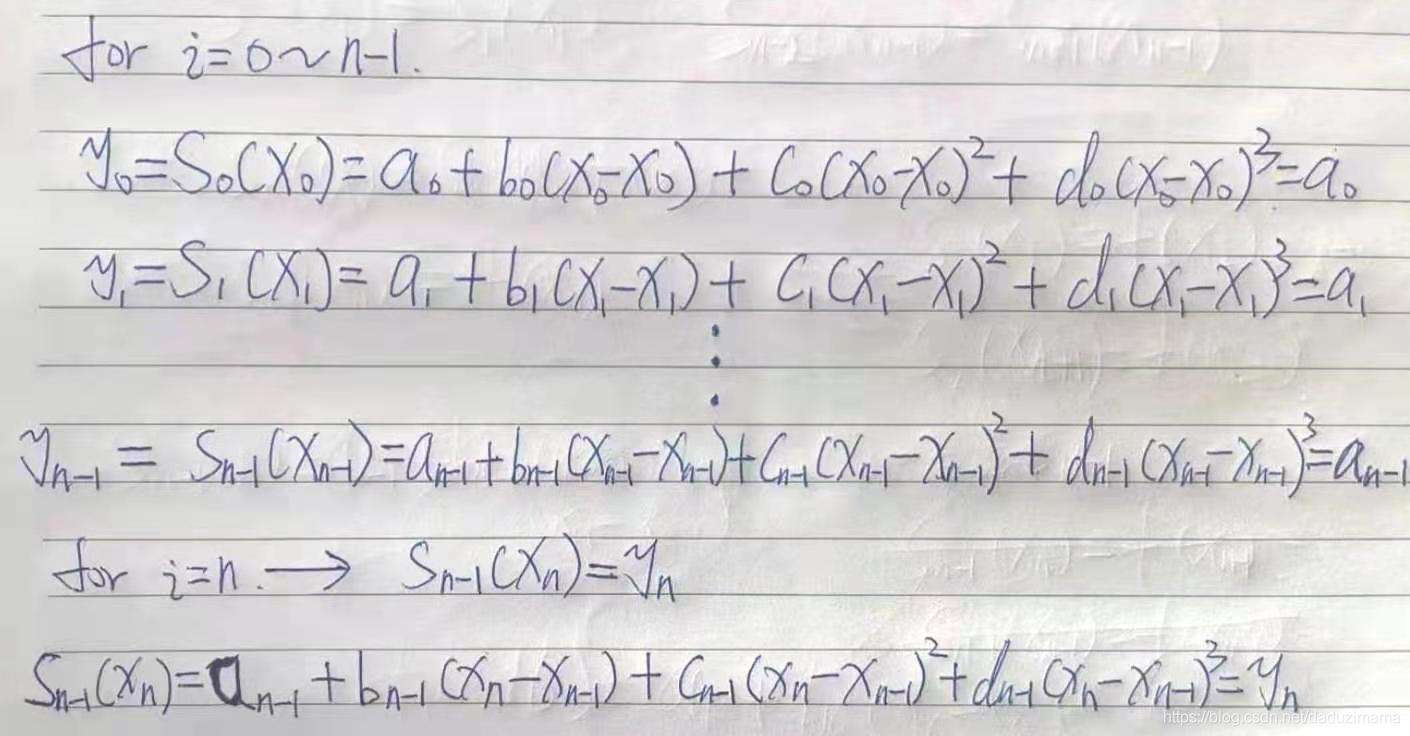 for i=0~n-1.
y₀=S₀(x₀)=a₀+b₀(x₀-x₀)+c₀(x₀-x₀)²+d₀(x₀-x₀)³=a₀
y₁=S₁(x₁)=a₁+b₁(x₁-x₁)+c₁(x₁-x₁)²+d₁(x₁-x₁)³=a₁
⋮
yₙ₋₁=Sₙ₋₁(xₙ₋₁)=aₙ₋₁+bₙ₋₁(xₙ₋₁-xₙ₋₁)+cₙ₋₁(xₙ₋₁-xₙ₋₁)²+dₙ₋₁(xₙ₋₁-xₙ₋₁)³=aₙ₋₁
for i=n. → Sₙ₋₁(xₙ)=yₙ
Sₙ₋₁(xₙ)=aₙ₋₁+bₙ₋₁(xₙ-xₙ₋₁)+cₙ₋₁(xₙ-xₙ₋₁)²+dₙ₋₁(xₙ-xₙ₋₁)³=yₙ
https://blog.csdn.net/daduzimama